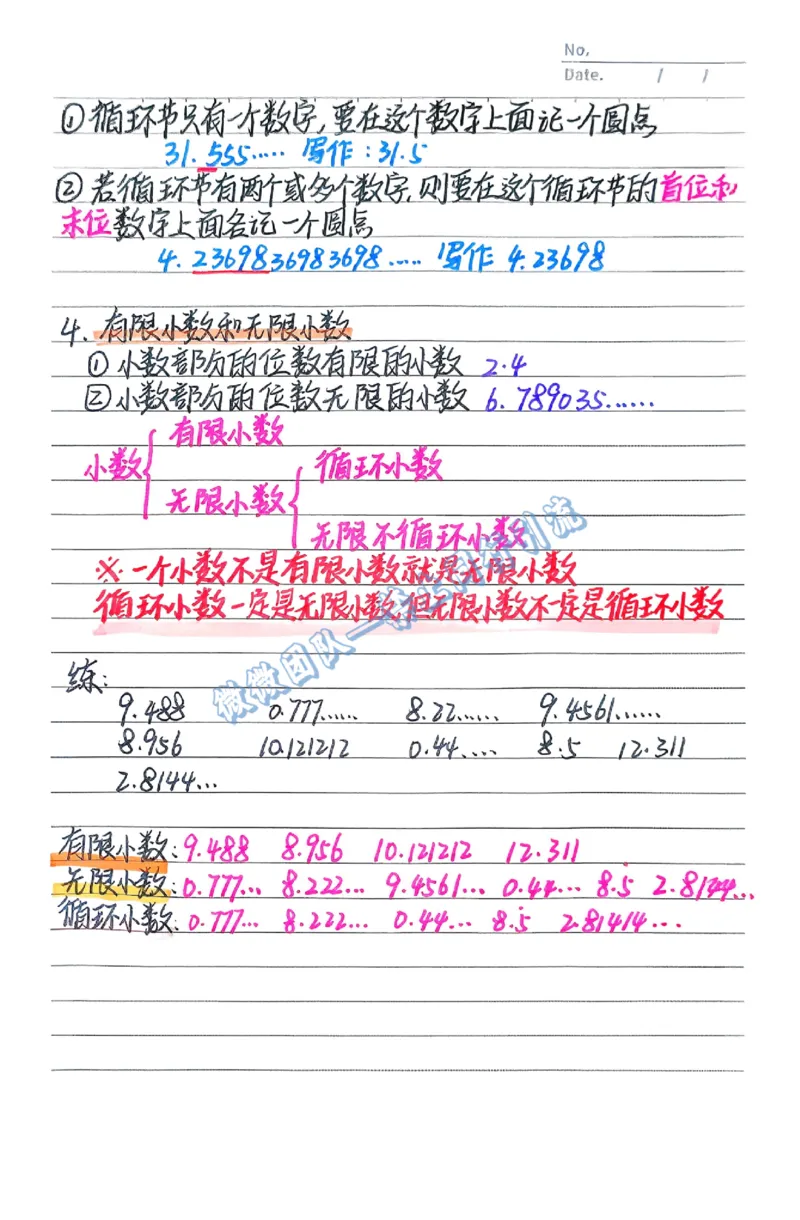 No.
Date. / /
①循环节只有一个数字,要在这个数字上面记一个圆点
31.555…… 写作:31.5
②若循环节有两个或多个数字,则要在这个循环节的首位和
末位数字上面各记一个圆点
4.2369836983698…… 写作 4.23698
4.有限小数和无限小数
①小数部分的位数有限的小数 2.4
②小数部分的位数无限的小数 6.789035……
有限小数
小数 循环小数
无限小数
无限不循环小数
※一个小数不是有限小数就是无限小数
循环小数一定是无限小数,但无限小数不一定是循环小数
微微团队一
引流
练:
9.488 0.777…… 8.22…… 9.4561……
8.956 10.121212 0.44…… 8.5 12.311
2.8144…
有限小数:9.488 8.956 10.121212 12.311
无限小数:0.777… 8.222… 9.4561… 0.44… 8.5̇ 2.8144…
循环小数:0.777… 8.222… 0.44… 8.5̇ 2.81414…